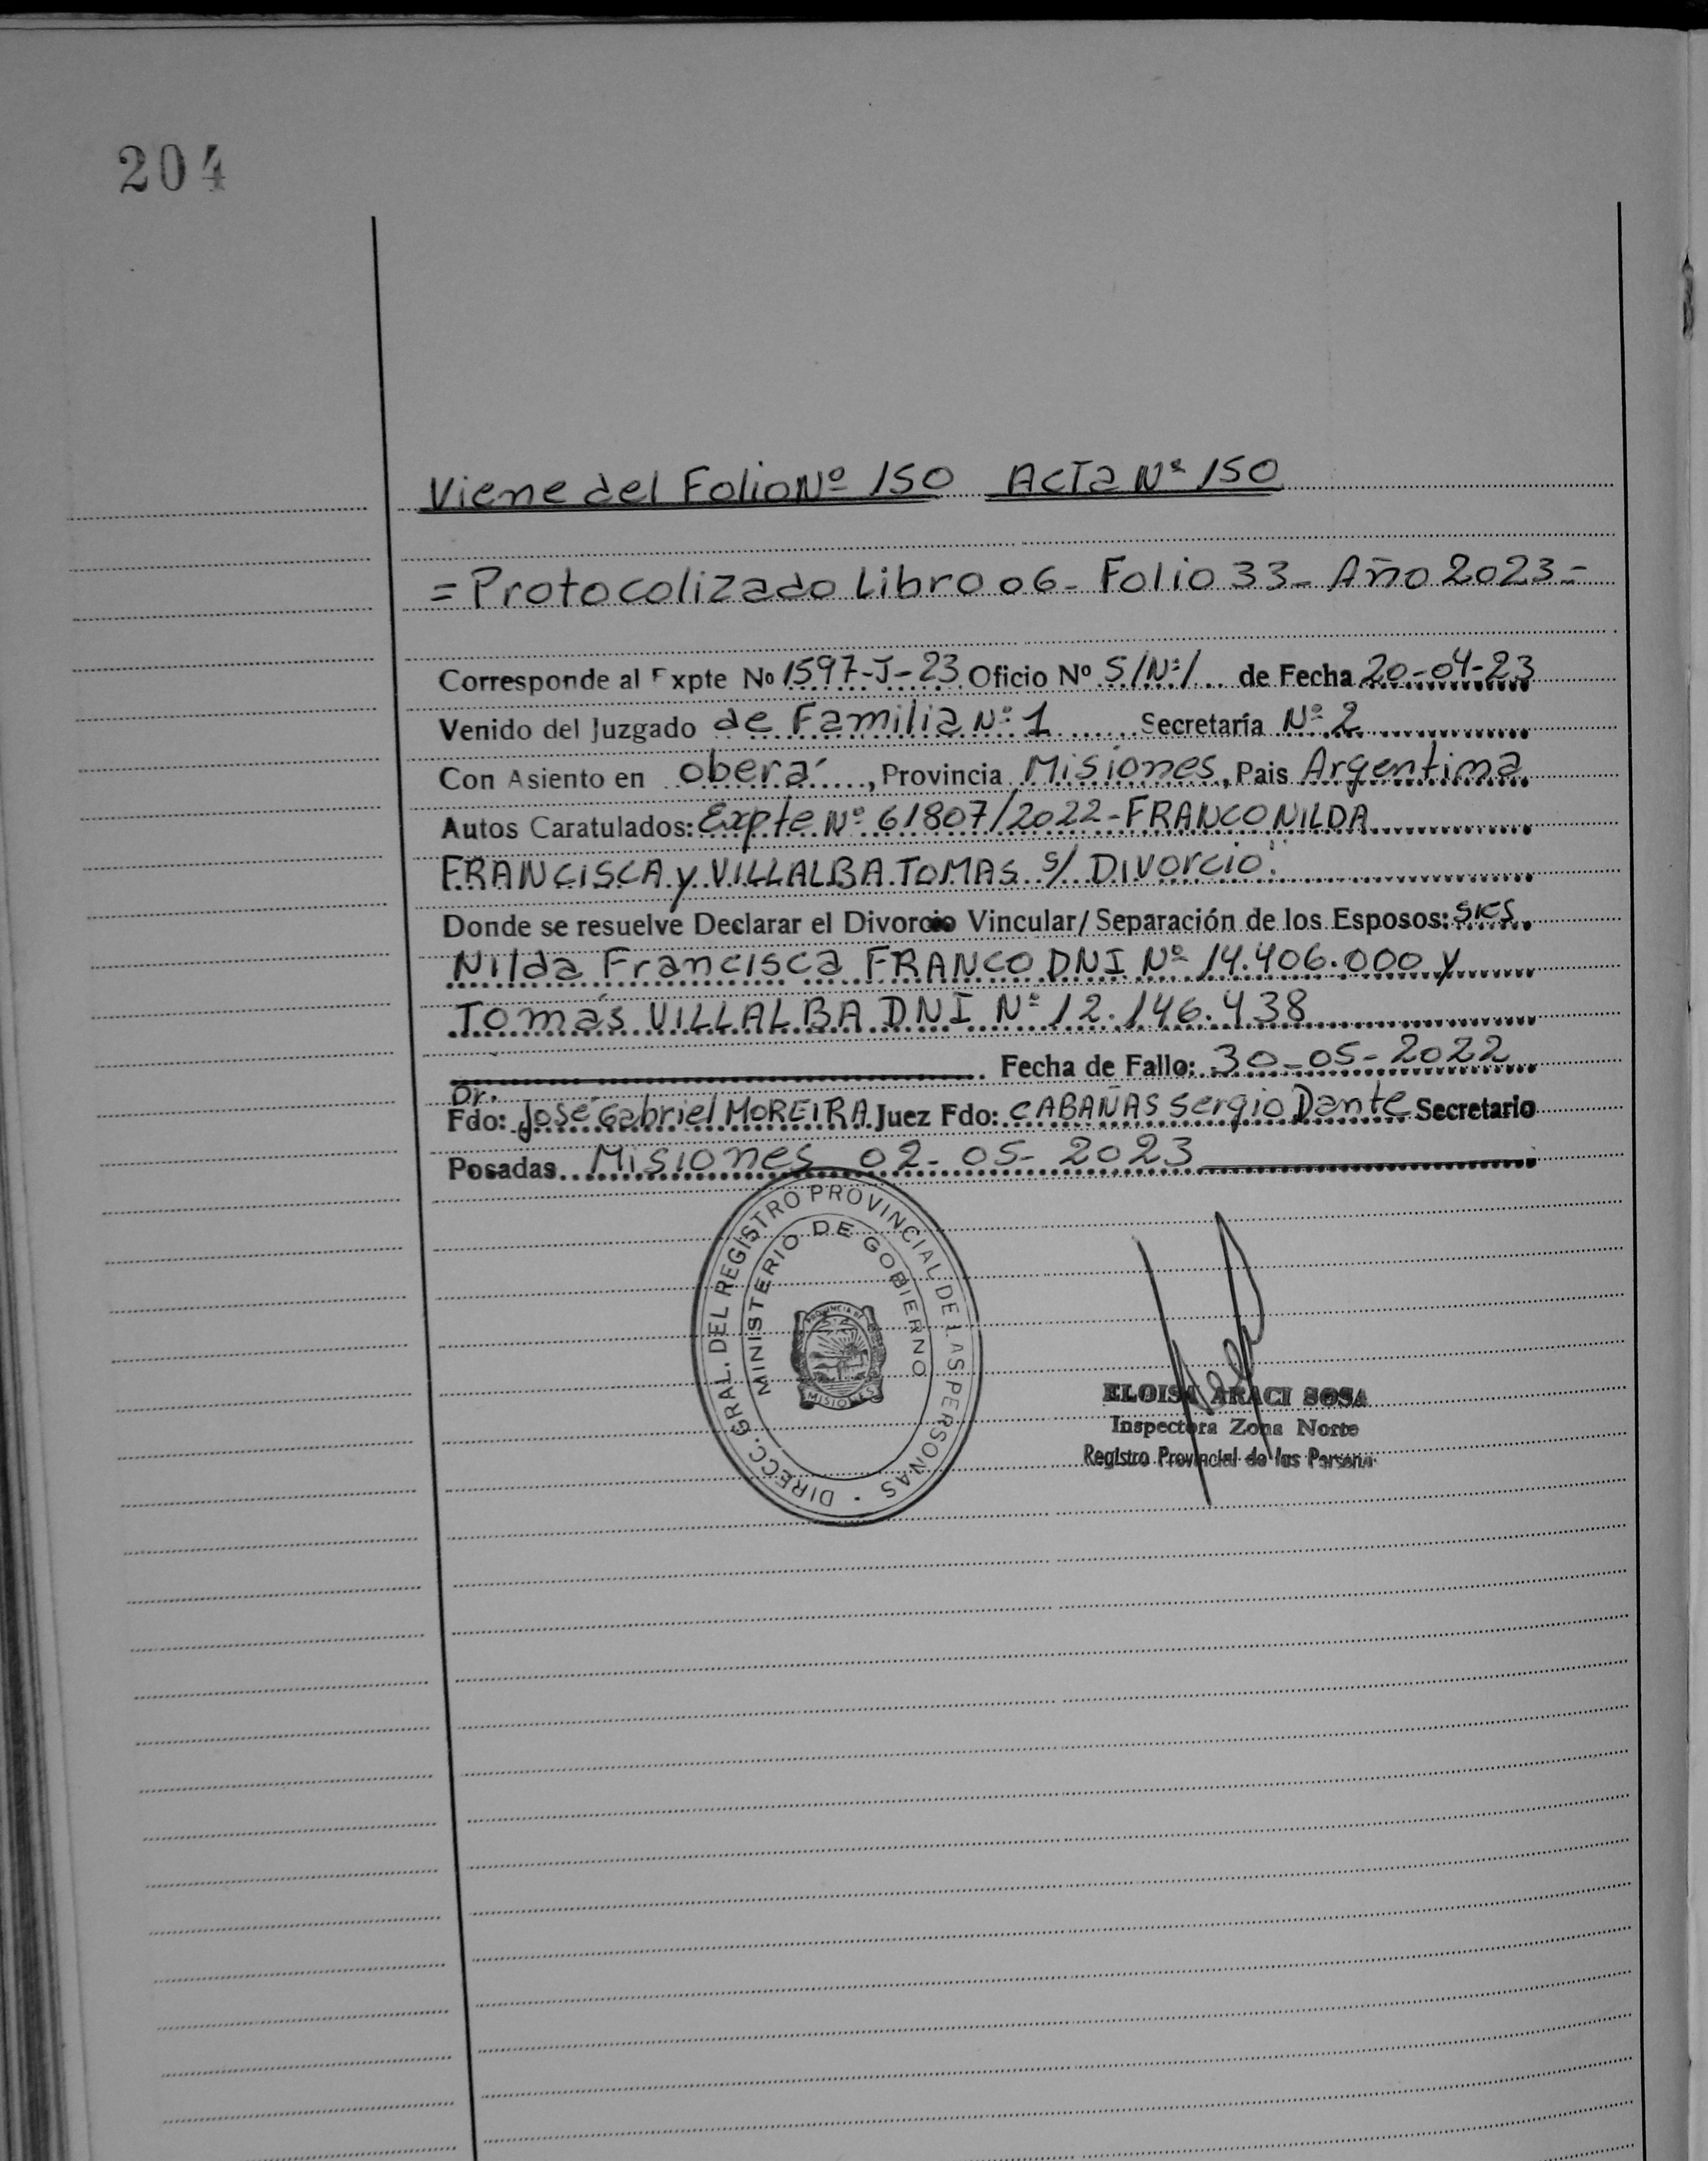 204
Viene del Folio Nº 150 Acta Nº 150
= Protocolizado Libro 06 - Folio 33 - Año 2023 =
Corresponde al Expte Nº 1597-J-23 Oficio Nº S/Nº/ de Fecha 20-04-23
Venido del Juzgado de Familia Nº 1 Secretaría Nº 2
Con Asiento en oberá, Provincia Misiones, Pais Argentina
Autos Caratulados: Expte Nº 61807/2022 - FRANCO NILDA
FRANCISCA y VILLALBA TOMAS S/ DIVORCIO.
Donde se resuelve Declarar el Divorcio Vincular/ Separación de los Esposos: sres.
Nilda Francisca FRANCO DNI Nº 14.406.000 y
Tomás VILLALBA DNI Nº 12.146.438
Fecha de Fallo: 30-05-2022
Dr.
Fdo: José Gabriel MOREIRA Juez Fdo: CABAÑAS Sergio Dante Secretario
Posadas Misiones 02-05-2023
DIRECC. GRAL. DEL REGISTRO PROVINCIAL DE LAS PERSONAS
MINISTERIO DE GOBIERNO
PROVINCIA DE
MISIONES
ELOISA ARACI SOSA
Inspectora Zona Norte
Registro Provincial de las Persona